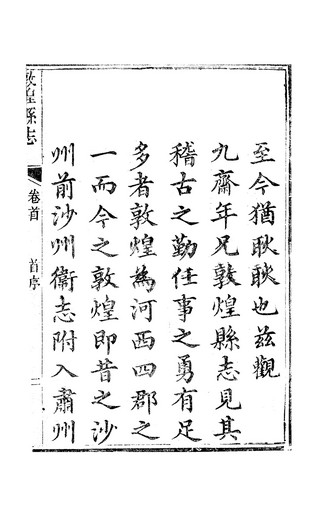 至今猶耿耿也茲觀
九齋年兄敦煌縣志見其
稽古之勤任事之勇有足
多者敦煌為河西四郡之
一而今之敦煌即昔之沙
州前沙州衞志附入肅州
敦煌縣志
卷首
首序
二